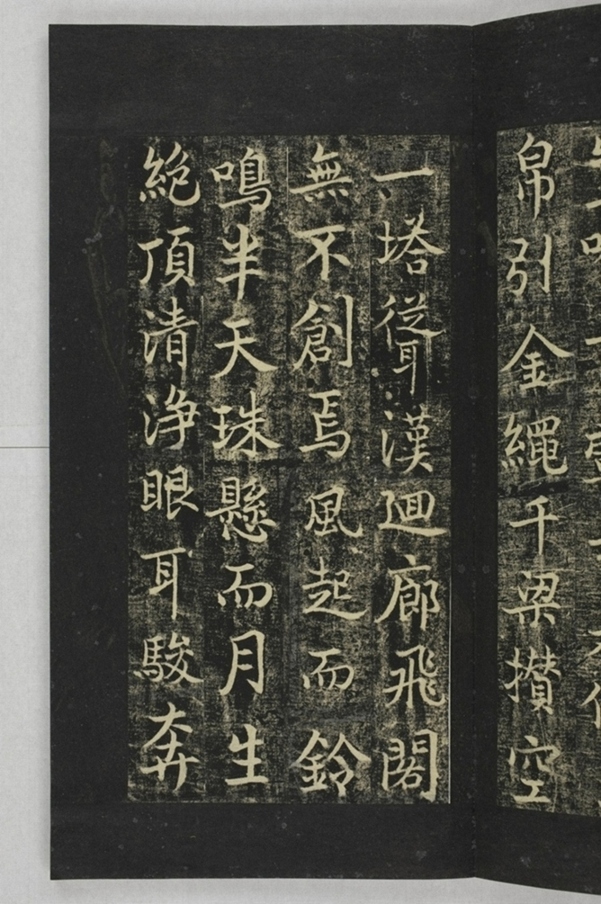 帛引金繩千梁攢空
一塔聳漢廻廊飛閣
無不創焉風起而鈴
鳴半天珠懸而月生
絕頂清浄眼耳駿奔